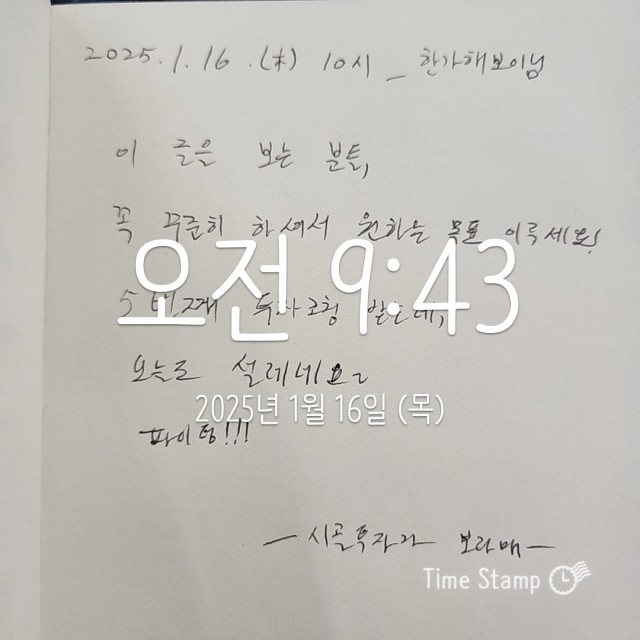 2025.1.16.(木) 10시 _ 한가해보이님
이 글을 보는 분들,
꼭 꾸준히 하셔서 원하는 목표 이루세요!
오전 9:43
5번째 투자코칭 받는데,
오늘도 설레네요~
2025년 1월 16일 (목)
파이팅!!!
- 시골투자가 보라매 -
Time Stamp